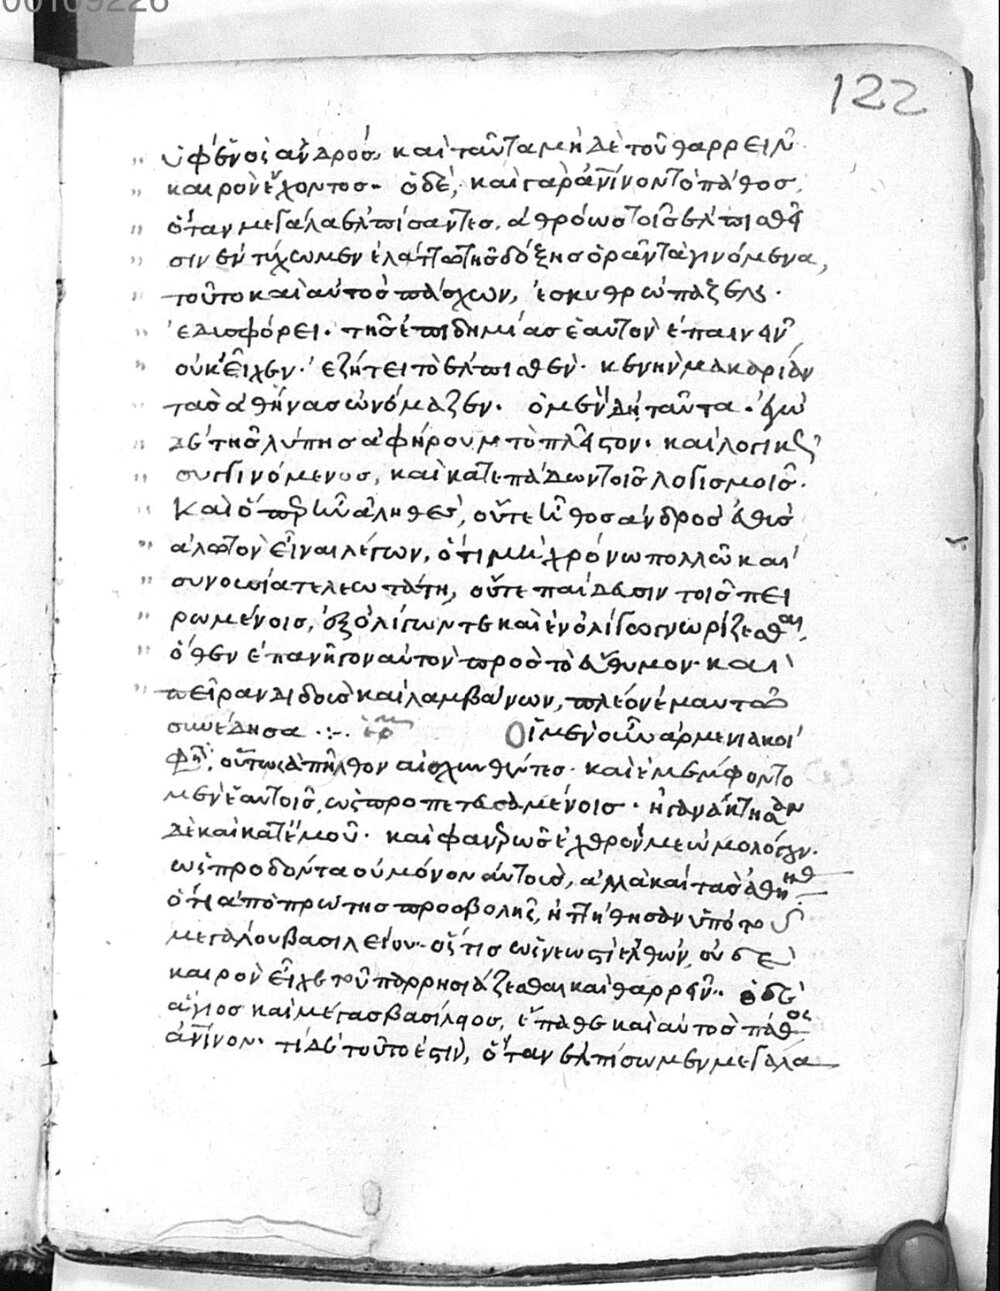 00109226
122
ὑφ' ἑνὸς ἀνδρὸς, καὶ ταῦτα μηδὲ τοῦ θαρρεῖν
καιρὸν ἔχοντος. ὁ δὲ, καὶ γὰρ ἀνθρώπινόν τι πάθος,
ὅταν μεγάλα ἐλπίσαντες, ἀθρόως τοῖς ἐλπισθεῖ
σιν ἐντύχωμεν ἐλάττω τῆς δόξης ὁρᾶν τὰ γινόμενα,
τοῦτο καὶ αὐτὸς πάσχων, ἐσκυθρώπαζεν.
ἐδυσφόρει. τῆς ἐπιδημίας ἑαυτὸν ἐπαινεῖν
οὐκ εἶχεν. ἐζήτει τὸ ἐλπισθέν. κενὴν μακαρίαν
τὰς ἀθήνας ὠνόμαζεν. ὁ μὲν δὴ ταῦτα. ἐγὼ
δὲ τῆς λύπης ἀφῄρουν τὸ πλεῖστον. καὶ λογικῶς
συγγινόμενος, καὶ κατεπᾴδων τοῖς λογισμοῖς.
Καὶ ὅπερ ἦν ἀληθὲς, οὔτε ἦθος ἀνδρὸς εὐθὺς
ἁλωτὸν εἶναι λέγων, ὅτι μὴ χρόνω πολλῶ καὶ
συνουσία τελεωτάτη, οὔτε παίδευσιν τοῖς πει
ρωμένοις, ἐξ ὀλίγων τε καὶ ἐν ὀλίγω γνωρίζεσθαι,
ὅθεν ἐπανῆγον αὐτὸν πρὸς τὸ εὔθυμον. καὶ
πεῖραν διδοὺς καὶ λαμβάνων, πλέον ἐμαυτῶ
συνέδησα .:. ἑρμ Οἱ μὲν οὖν ἀρμενιακοὶ
φησὶν, οὕτως ἀπῆλθον αἰσχυνθέντες. καὶ ἐμέμφοντο
μὲν ἑαυτοῖς, ὡς προπετευσαμένοις. ἠγανάκτησαν
δὲ καὶ κατ' ἐμοῦ. καὶ φανερῶς ἐχθρόν με ὡμολόγουν.
ὡς προδόντα οὐ μόνον αὐτοὺς, ἀλλὰ καὶ τὰς ἀθήνας
ὅτι ἀπὸ πρώτης προσβολῆς, ἡττήθησαν ὑπὸ τοῦ
μεγάλου βασιλείου. ὅστις ὡς νεωστὶ ἐλθὼν, οὐδὲ
καιρὸν εἶχε τοῦ παρρησιάζεσθαι καὶ θαρρεῖν. ὁ δὲ
ἅγιος καὶ μέγας βασίλειος, ἔπαθε καὶ αὐτὸς πάθος
ἀνθρώπινον. τί δὲ τοῦτο ἐστὶν, ὅταν ἐλπίσωμεν μεγάλα